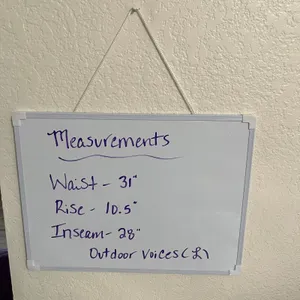 Measurements
Waist - 31"
Rise - 10.5"
Inseam - 28"
Outdoor Voices (L)